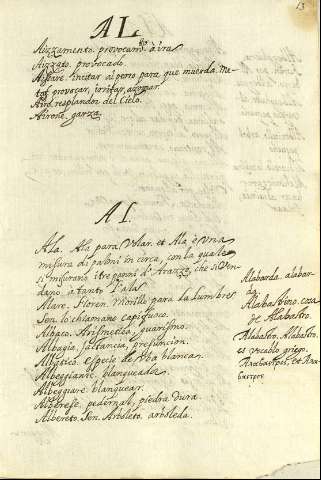 13
AL
Aizzamento. provocamto. ò ira
Aizzato. provocado.
Aizzare. incitar al perro para que muerda. me-
tof. provocar, irritar, azomar.
Airo. resplandor del Cielo.
Airone, garza
AL
Ala. Ala para Volar. et Ala è una
misura di palmi in circa, con la quale
si misurano i tre panni di Arazzo, che si ven-
dano à tanto l'ala
Alare. Floren. Morillo para la lumbre
Sen. lo chiamano capifuoco.
Albaco. Arismetica, guarismo.
Albagia, jactancia, presunción.
Albatico. especie de Vba blanca.
Albeggiante. blanqueada
Albeggiare. blanquear.
Alberese. pedernal, piedra dura.
Albereto. Sen. Arboleto. arboleda.
Alabarda. alabar-
da.
Alabastrino. cosa
de Alabastro.
Alabastro. Alabastro.
es vocablo griego.